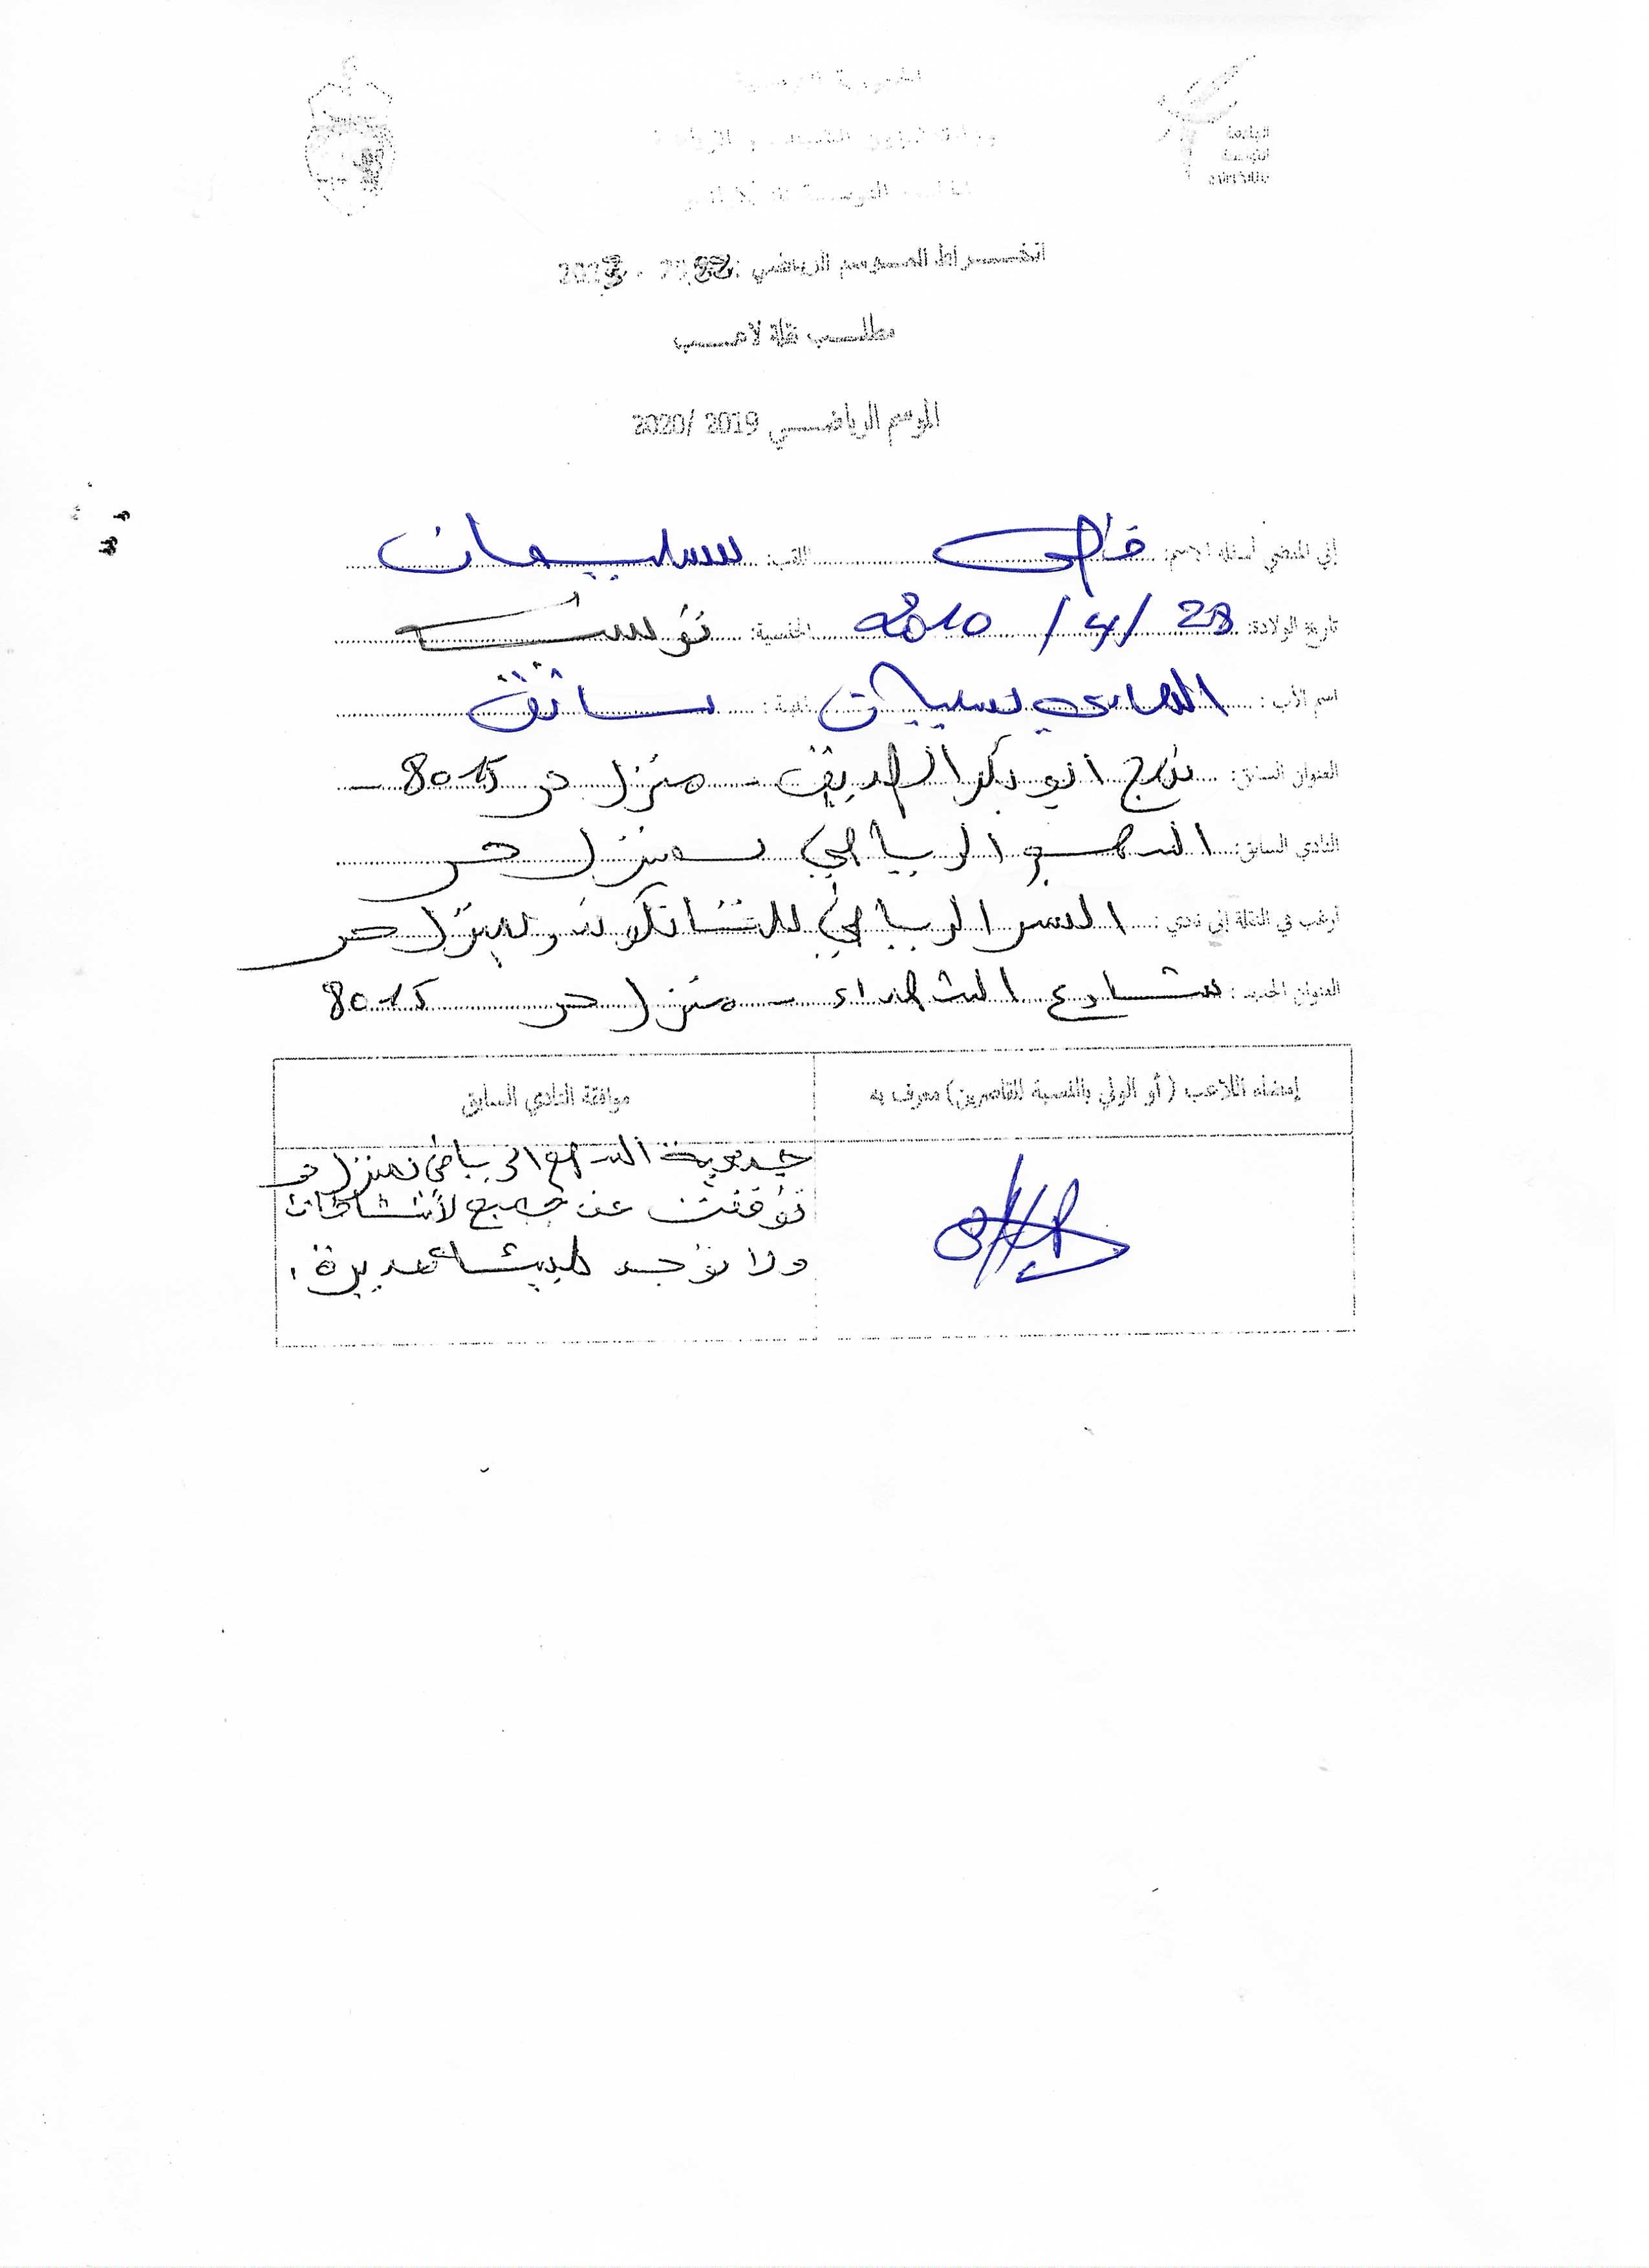 الجامعة
التونسية
للتايكواندو
انخراط الموسم الرياضي :
مطلب نقلة لاعب
الموسم الرياضي 2019 /2020
إني الممضي أسفله الاسم: اللقب: سليمان
تاريخ الولادة: 23 /4/ 2010 الجنسية: تونسية
اسم الأب : الهادي سليمان المهنة : سائق
العنوان السابق: نهج ابو بكر الصديق - منزل حر 8015 -
النادي السابق: السهم الرياضي بمنزل حر
أرغب في النقلة إلى نادي : النسر الرياضي للتايكواندو بمنزل حر
العنوان الجديد : شارع الشهداء - منزل حر 8015
إمضاء اللاعب ( أو الولي بالنسبة للقاصرين) معرف به
موافقة النادي السابق
جمعية السهم الرياضي بمنزل حر
توقفت عن جميع الأنشطة
ولا توجد هيئة مديرة .